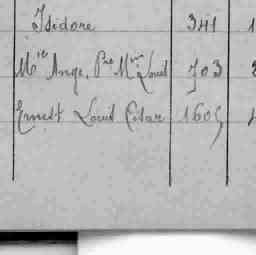 Isidore 341 1
Mie Ange, Pre Mie Louis 703
Ernest Louis César 1605